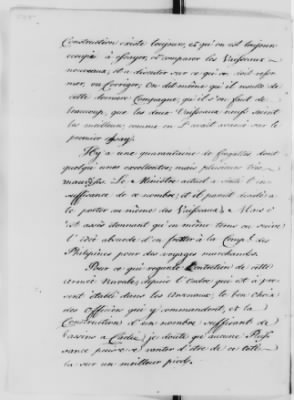 Construction existe toujours, et qu'on est toujours
occupé à essayer, et comparer les Vaisseaux
nouveaux, et à discuter sur ce qui doit refor-
mer, ou Corriger. On dit même qu'il resulte de
cette derniere Campagne, qu'il s'en faut de
beaucoup, que les deux Vaisseaux neufs soient
les meilleurs, comme on l'avait avancé sur le
premier essay.
Il y a une quarantaine de fregattes dont
quelqu'unes excellentes; mais plusieurs très
mauvaises. Le Ministre actuel a senti l'in-
suffisance de ce nombre; et il parait decidé à
le porter au même des Vaisseaux. Mais c'
est assés étonnant qu'en même tems on suive
l'idée absurde d'en fretter à la Comp.e des
Philipines pour des voyages marchands.
Pour ce qui regarde l'entretien de cette
armée Navale, depuis l'ordre qui est à pre-
sent établi dans les Arsenaux, le bon choix
des officiers qui y commandent, et la
Construction d'un nombre suffisant de
bassins à Cadix, je doute qu'aucune Puis-
sance puisse se vanter d'être de ce côté
là sur un meilleur pied.